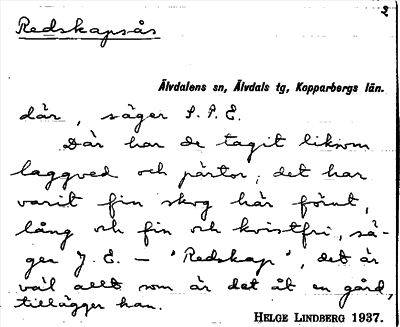 2
Redskapsås
Älvdalens sn, Älvdals tg, Kopparbergs län.
där, säger S. P. E.
Där har de tagit liksom
laggved och pärtor; det har
varit fin skog här förut,
lång och fin och kvistfri, sä-
ger J. E. – "Redskap", det är
väl allt som är det åt en gård,
tillägger han.
HELGE LINDBERG 1937.